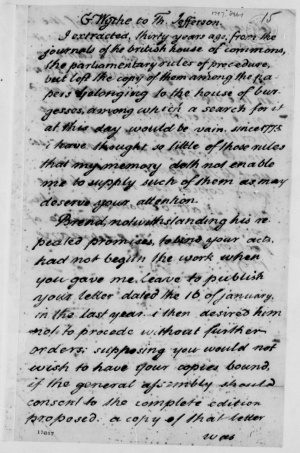 G. Wythe to Th. Jefferson.
15
I extracted, thirty years ago, from the
journals of he british house of commons,
the parliamentary rules of procedure,
but left the copy of them among the pa-
pers belonging to the house of bur-
gesses, among which a search for it
at this day would be vain. since 1775
i have thought so little of those rules
that my memory doth not enable
me to supply such of them as may
deserve your attention.
Brend, notwithstanding his re-
peated promises, to bind your acts,
had not begun the work when
you gave me leave to publish
your letter dated the 16 of january,
in the last year. i then desired him
not to procede without further
orders; supposing you would not
wish to have four copies bound,
if the general assembly should
consent to the complete edition
proposed. a copy of that letter
was